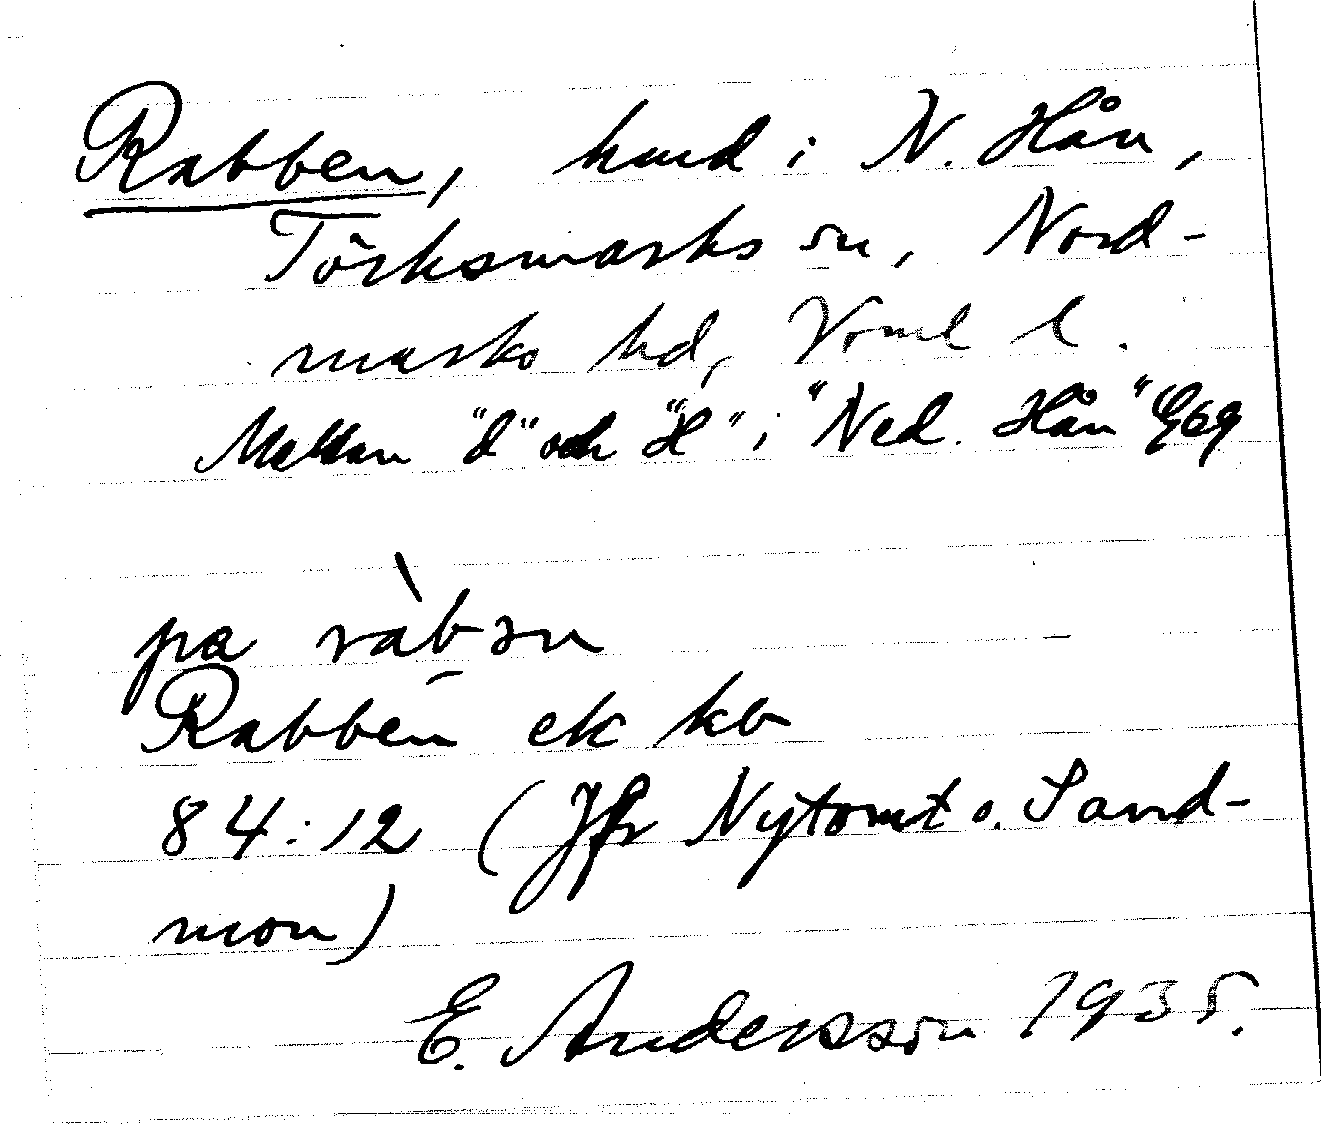 Rabben, hmd i N. Hån,
Törksmarks sn, Nord-
marks hd, Vrml l.
Mellan "d" och "H" i "Ned. Hån" E69
pa ràbən
Rabben ek kb
84:12 (Jfr Nytomt o. Sand-
mon)
E. Andersson 1935.